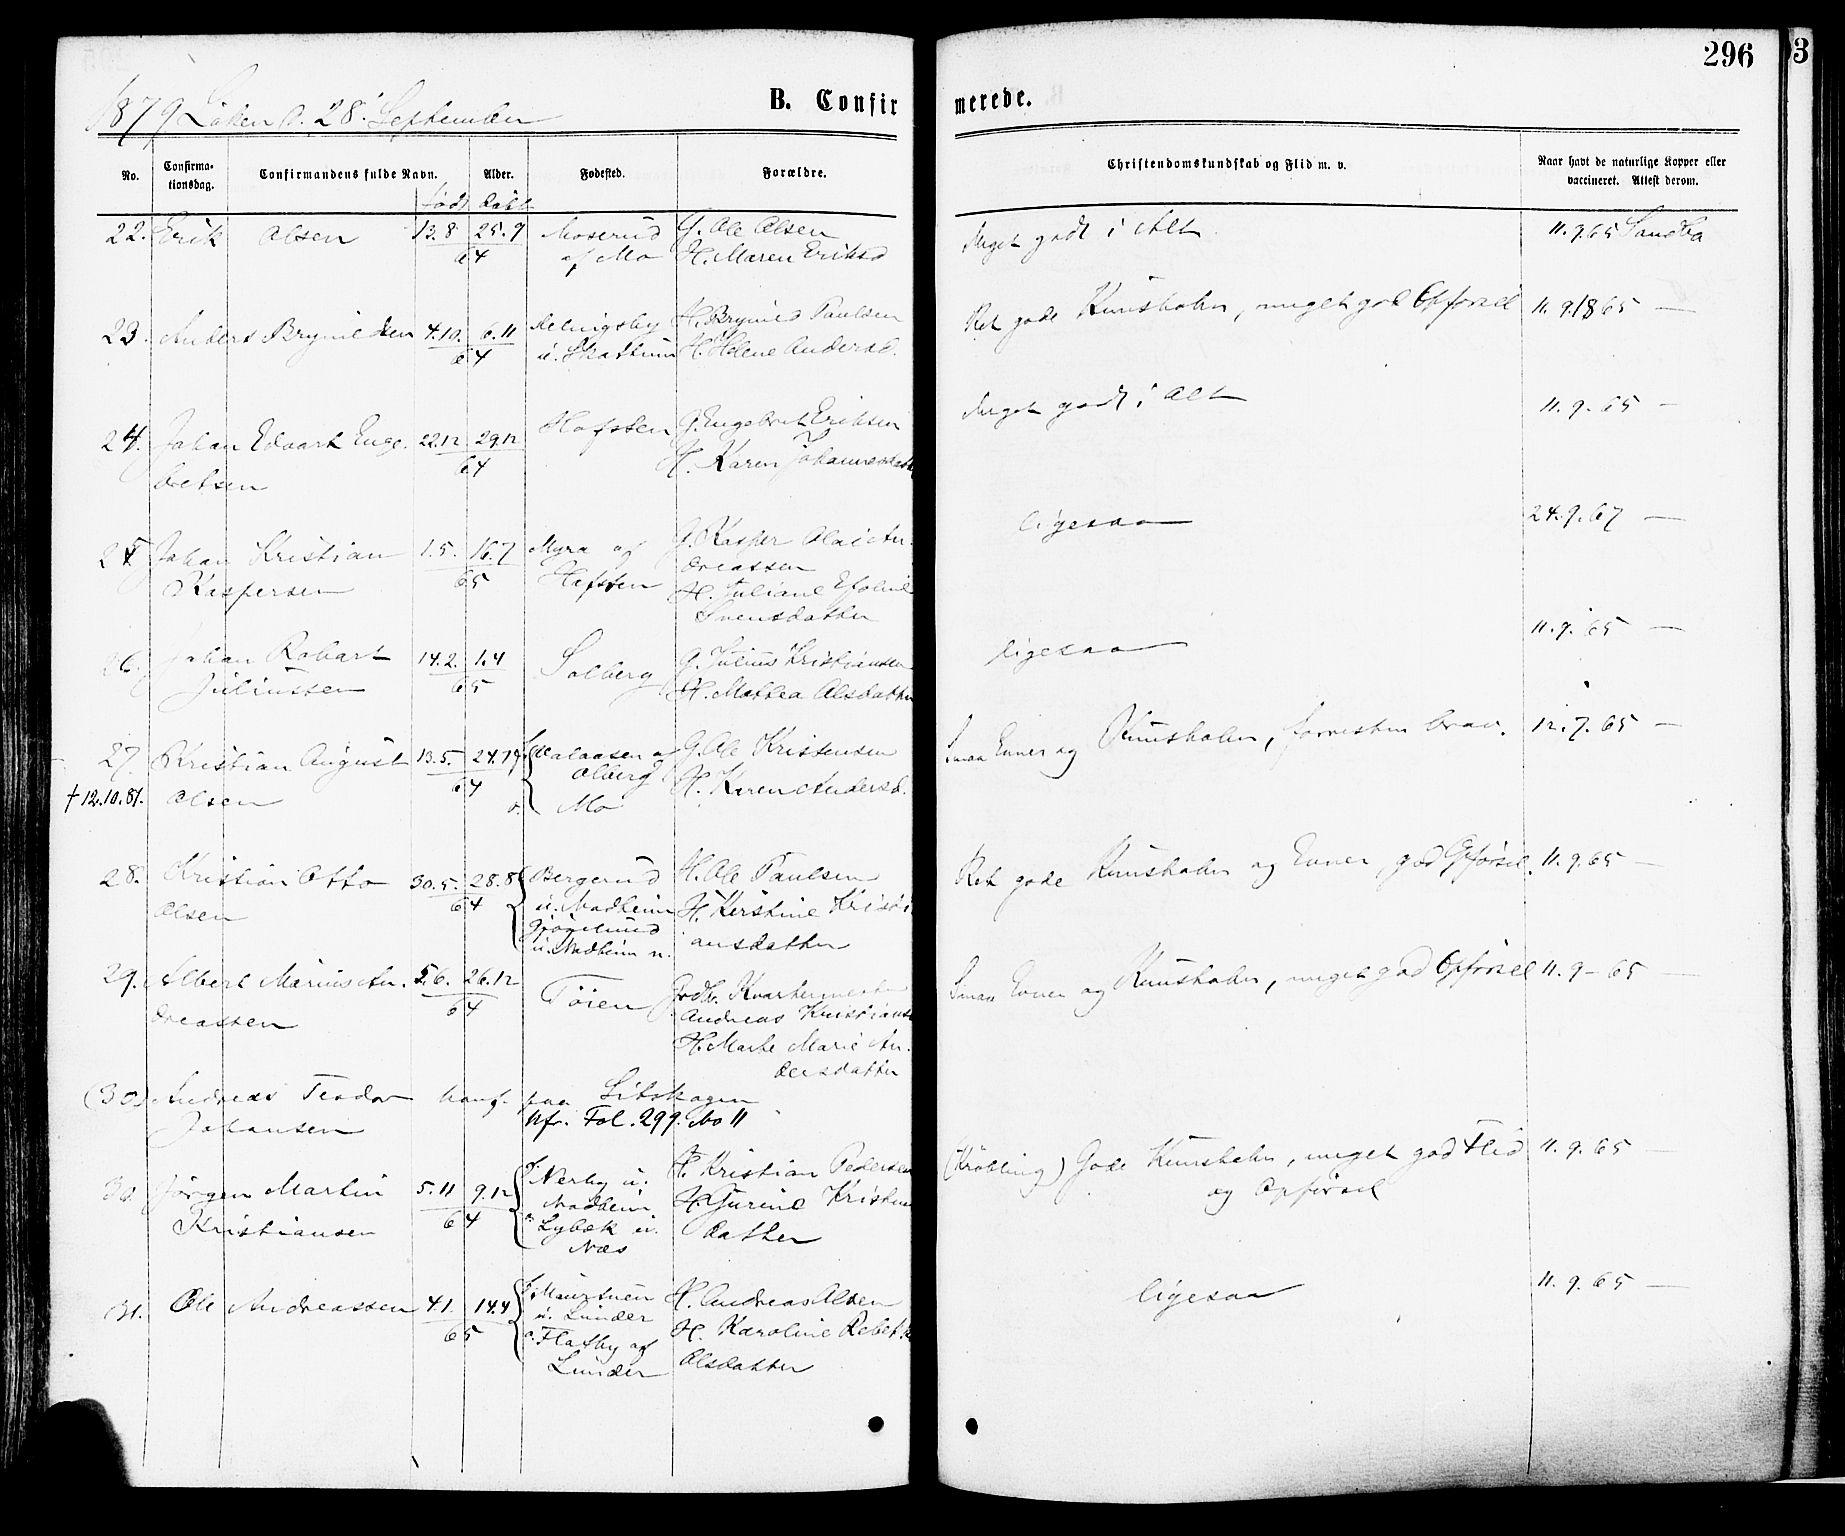 296
1879 Löken d. 28 September
B. Confirmerede.
No. Confirmationsdag. Confirmandens fulde Navn. Alder. Fødested. Forældre. Christendomskundskab og Flid m. v. Naar havt de naturlige Kopper eller vaccineret. Attest derom.
født døbt
22. Erik Olsen 13.8 25.9 Moserud G. Ole Olsen Meget godt i Alt 11.9.65
64 af Mo H. Maren Eriksd
23. Anders Brynildsen 4.10. 6.11 H. Brynild Paulsen Ret gode Kunskaber, meget god Opførsel 11.9.1865 —
64 u. H. Helene Andersd.
24. Johan Edvart Enge- 22.12 29.12 Hofsten G. Engebret Eriksen Meget godt i Alt 11.9.65 —
bretsen 64 H. Karen Johannesdatt
25 Johan Kristian 1.5. 16.7 Myra af G. Kasper Olai An- ligesaa 24.9.67 —
Kaspersen 65 Hofsten dreassen
H. Juliane
Svensdatter
26. Johan Robart 14.2. 1.4 Solberg G. Julius Kristiansen ligesaa 11.9.65 —
Juliussen 65 H. Mathea Olsdatter
27. Kristian August 13.5. 24.7 G. Ole Kristensen Smaa Evner og Kunskaber, forresten brav. 12.7.65 —
† 12.10.81. Olsen 64 Mo H. Karen Andersd.
28. Kristian Otto 30.5. 28.8 Bergerud H. Ole Paulsen Ret gode Kunskaber og Evner, god Opførsel. 11.9.65 —
Olsen 64 u. Nadheim H. Kerstine Kristi
u. Nadheim ansdatter
29. Albert Marius An- 5.6. 26.12 Töien Kvartermester Smaa Evner og Kunskaber, meget god Opførsel 11.9-65 —
dreassen 64 Andreas Kristians
H. Marte Marie An-
dersdatter
(30) Andreas Teodor konf. paa Sitskogen
Johansen kfr. Fol. 299. No 11
30. Jørgen Martin 5.11 9.12 f. Nerby u. H. Kristian Pedersen (Kröbling) Gode Kunskaber, meget god Flid 11.9.65 —
Kristiansen 64 Nadheim H. Gurine Kristians og Opførsel
Lybæk u. datter
Næs
31. Ole Andreassen 4.1. 14.4 H. Andreas Olsen ligesaa 11.9.65 —
65 u. Lunder H. Karoline Rebek
Flatby af Olsdatter
Lunder